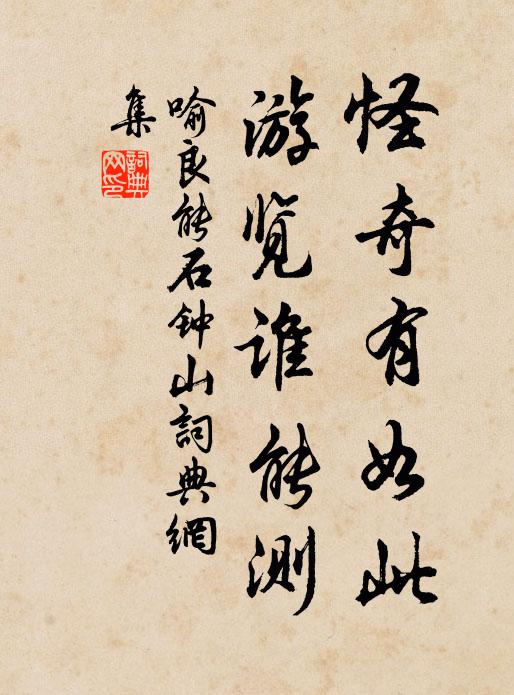 怪奇有如此
游览谁能测
喻良能石钟山詞典網
集
詞典
网印